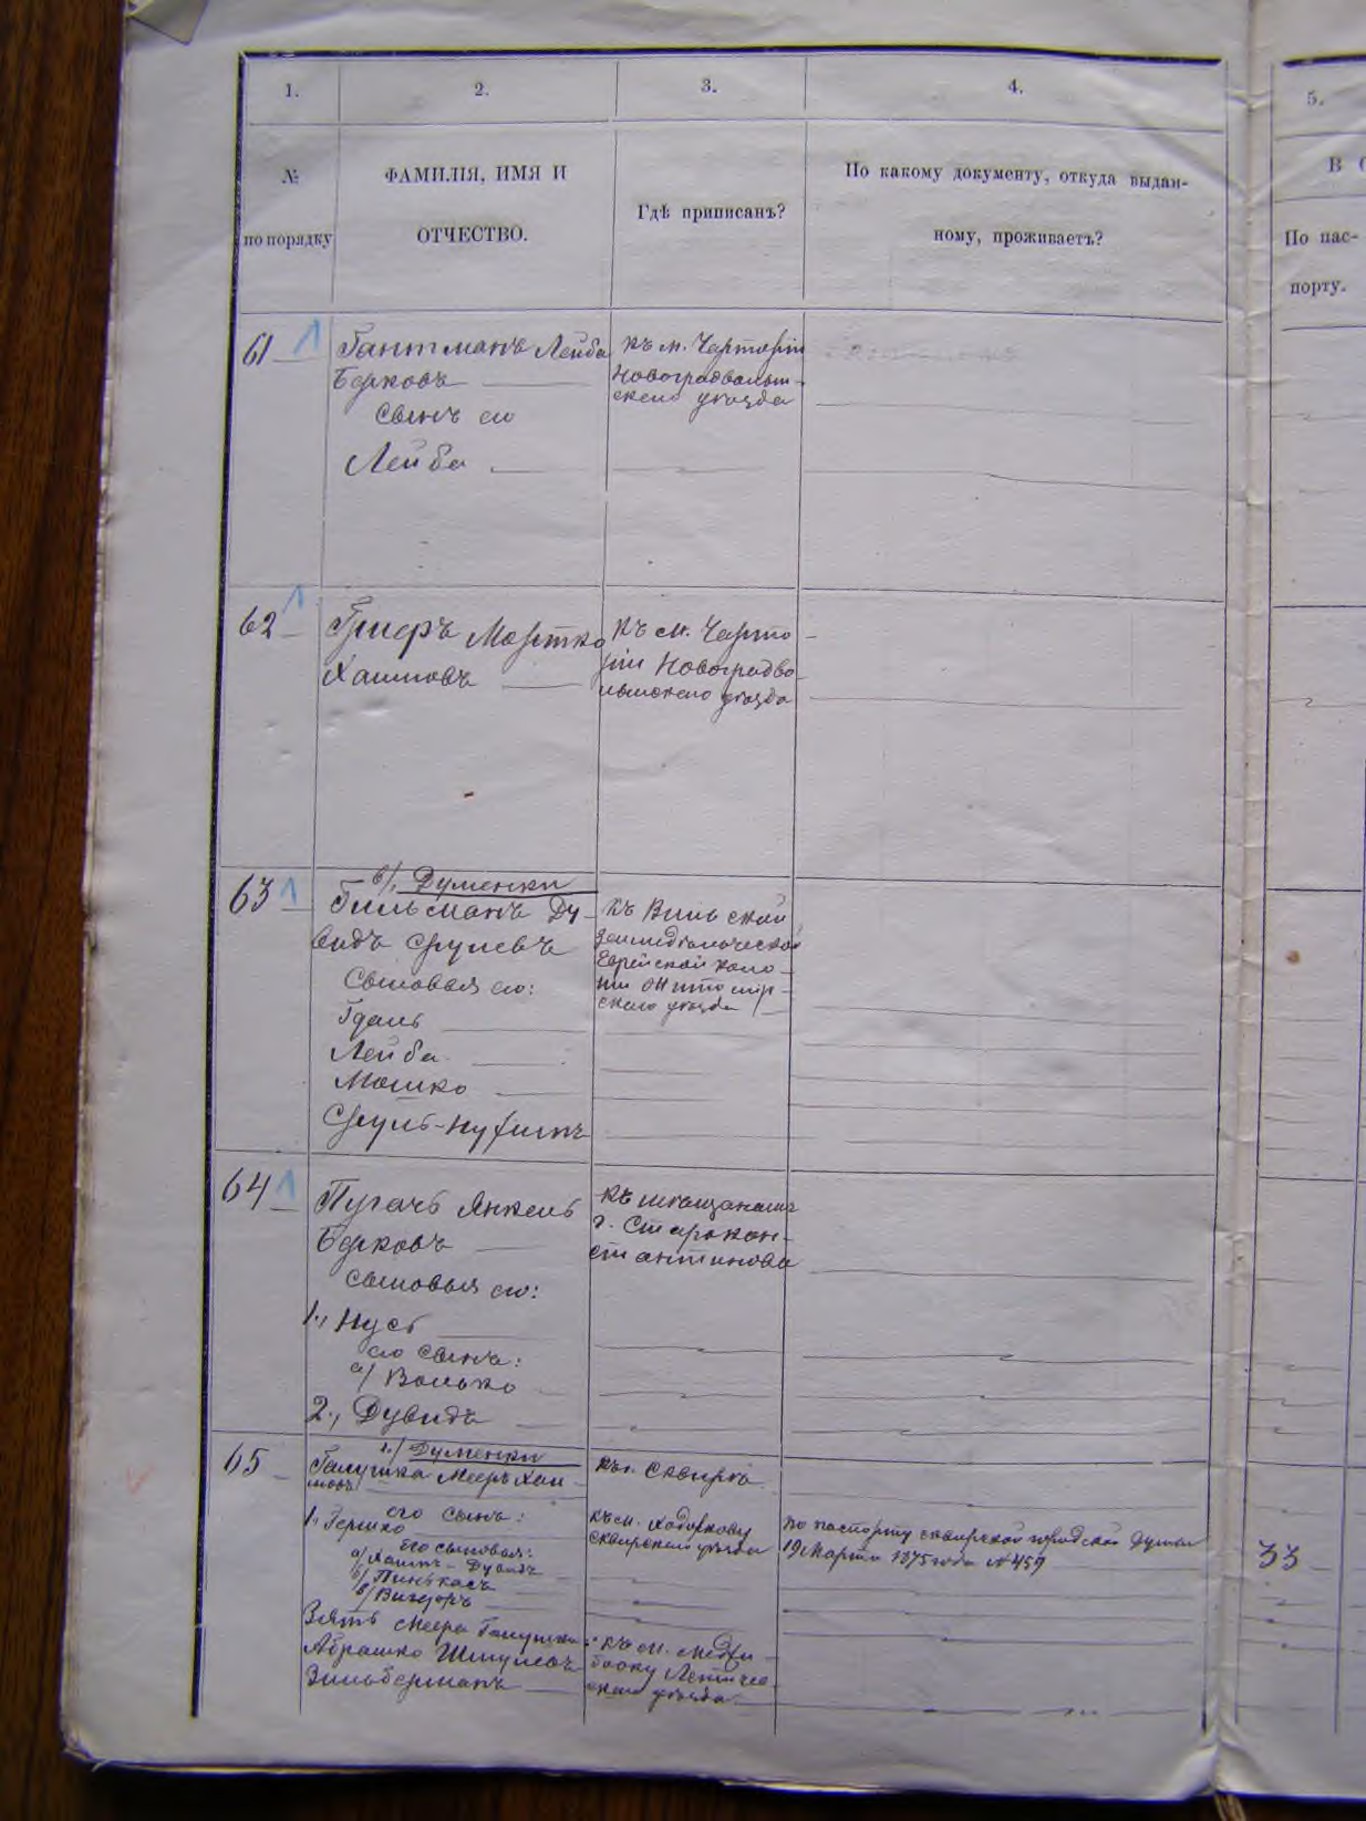 1.
2.
3.
4.
5.
№
по порядку
ФАМИЛІЯ, ИМЯ И
ОТЧЕСТВО.
Гдѣ приписанъ?
По какому документу, откуда выдан-
ному, проживаетъ?
В
По пас-
порту.
61
Гантманъ Лейба
Берковъ
сынъ его
Лейба
къ м. Чарторіи
Новоградволын-
скаго уѣзда
62
Мортко
Хаимовъ
къ м. Чарто
ріи Новоградво
лынскаго уѣзда
63
б/, Думенки
Гильманъ Ду-
видъ Срулевъ
сыновья его:
Гдаль
Лейба
Мошко
Сруль-Нухимъ
къ Вильской
земледѣльческой
Еврейской коло-
ніи Житомир-
скаго уѣзда
64
Пугачъ Янкель
Берковъ
сыновья его:
1., Нусь
его сынъ:
а/ Волько
2., Дувидъ
къ мѣщанамъ
г. Старокон-
стантинова
65
Думенки
Галушка Мееръ Хаи-
мовъ
1., Гершко его сынъ:
его сыновья:
а/ Хаимъ-Дувидъ
б/ Пинькасъ
в/ Вигдоръ
Зять Меера Галушки
Абрашко Шмулевъ
Зильберманъ
къ г. Сквира
къ м. Ходоркову
Сквирскаго уѣзда
къ м. Межи-
божу Летичев-
скаго уѣзда
по паспорту сквирской городской Думы
19 Марта 1875 года № 459
33